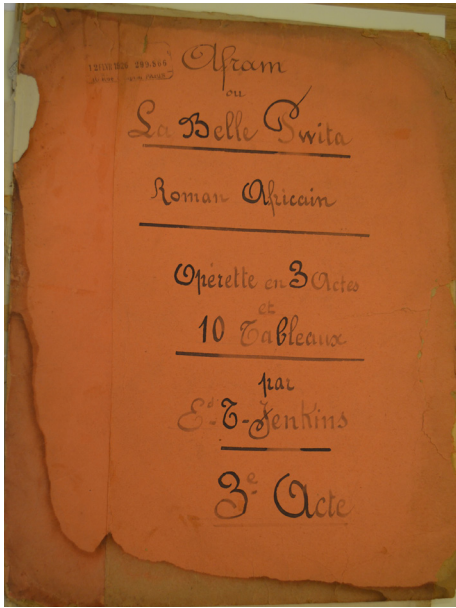 Afram
ou
La Belle Swita
Roman Africain
Opérette en 3 Actes
et
10 Tableaux
par
Ed-T-Jenkins
3e Acte